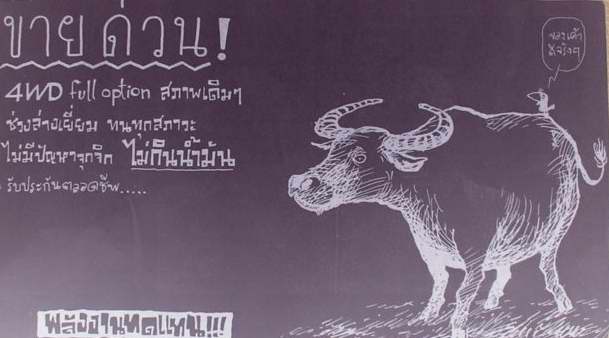 ขายด่วน!
4WD full option สภาพเดิมๆ
ช่วงล่างเยี่ยม ทนทุกสภาวะ
ไม่มีปัญหาจุกจิก ไม่กินน้ำมัน
รับประกันตลอดชีพ.....
พลังงานทดแทน!!!
ของเค้า
ดีจริงๆ